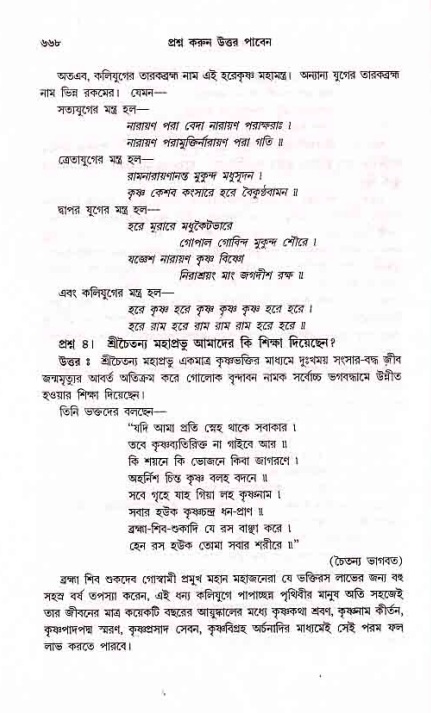 ৬৬৮ প্রশ্ন করুন উত্তর পাবেন
অতএব, কলিযুগের তারকব্রহ্ম নাম এই হরেকৃষ্ণ মহামন্ত্র। অন্যান্য যুগের তারকব্রহ্ম
নাম ভিন্ন রকমের। যেমন—
সত্যযুগের মন্ত্র হল—
নারায়ণ পরা বেদা নারায়ণ পরাক্ষরাঃ ।
নারায়ণ পরামুক্তির্নারায়ণ পরা গতি ॥
ত্রেতাযুগের মন্ত্র হল—
রামনারায়ণানন্ত মুকুন্দ মধুসূদন ।
কৃষ্ণ কেশব কংসারে হরে বৈকুণ্ঠবামন ॥
দ্বাপর যুগের মন্ত্র হল—
হরে মুরারে মধুকৈটভারে
গোপাল গোবিন্দ মুকুন্দ শৌরে ।
যজ্ঞেশ নারায়ণ কৃষ্ণ বিষ্ণো
নিরাশ্রয়ং মাং জগদীশ রক্ষ ॥
এবং কলিযুগের মন্ত্র হল—
হরে কৃষ্ণ হরে কৃষ্ণ কৃষ্ণ কৃষ্ণ হরে হরে ।
হরে রাম হরে রাম রাম রাম হরে হরে ॥
প্রশ্ন ৪। শ্রীচৈতন্য মহাপ্রভু আমাদের কি শিক্ষা দিয়েছেন?
উত্তর ঃ শ্রীচৈতন্য মহাপ্রভু একমাত্র কৃষ্ণভক্তির মাধ্যমে দুঃখময় সংসার-বদ্ধ জীব
জন্মমৃত্যুর আবর্ত অতিক্রম করে গোলোক বৃন্দাবন নামক সর্বোচ্চ ভগবদ্ধামে উন্নীত
হওয়ার শিক্ষা দিয়েছেন।
তিনি ভক্তদের বলছেন—
“যদি আমা প্রতি স্নেহ থাকে সবাকার ।
তবে কৃষ্ণব্যতিরিক্ত না গাইবে আর ॥
কি শয়নে কি ভোজনে কিবা জাগরণে ।
অহর্নিশ চিন্ত কৃষ্ণ বলহ বদনে ॥
সবে গৃহে যাহ গিয়া লহ কৃষ্ণনাম ।
সবার হউক কৃষ্ণচন্দ্র ধন-প্রাণ ॥
ব্রহ্মা-শিব-শুকাদি যে রস বাঞ্ছা করে ।
হেন রস হউক তোমা সবার শরীরে ॥”
(চৈতন্য ভাগবত)
ব্রহ্মা শিব শুকদেব গোস্বামী প্রমুখ মহান মহাজনেরা যে ভক্তিরস লাভের জন্য বহু
সহস্র বর্ষ তপস্যা করেন, এই ধন্য কলিযুগে পাপাচ্ছন্ন পৃথিবীর মানুষ অতি সহজেই
তার জীবনের মাত্র কয়েকটি বছরের আয়ুষ্কালের মধ্যে কৃষ্ণকথা শ্রবণ, কৃষ্ণনাম কীর্তন,
কৃষ্ণপাদপদ্ম স্মরণ, কৃষ্ণপ্রসাদ সেবন, কৃষ্ণবিগ্রহ অর্চনাদির মাধ্যমেই সেই পরম ফল
লাভ করতে পারবে।